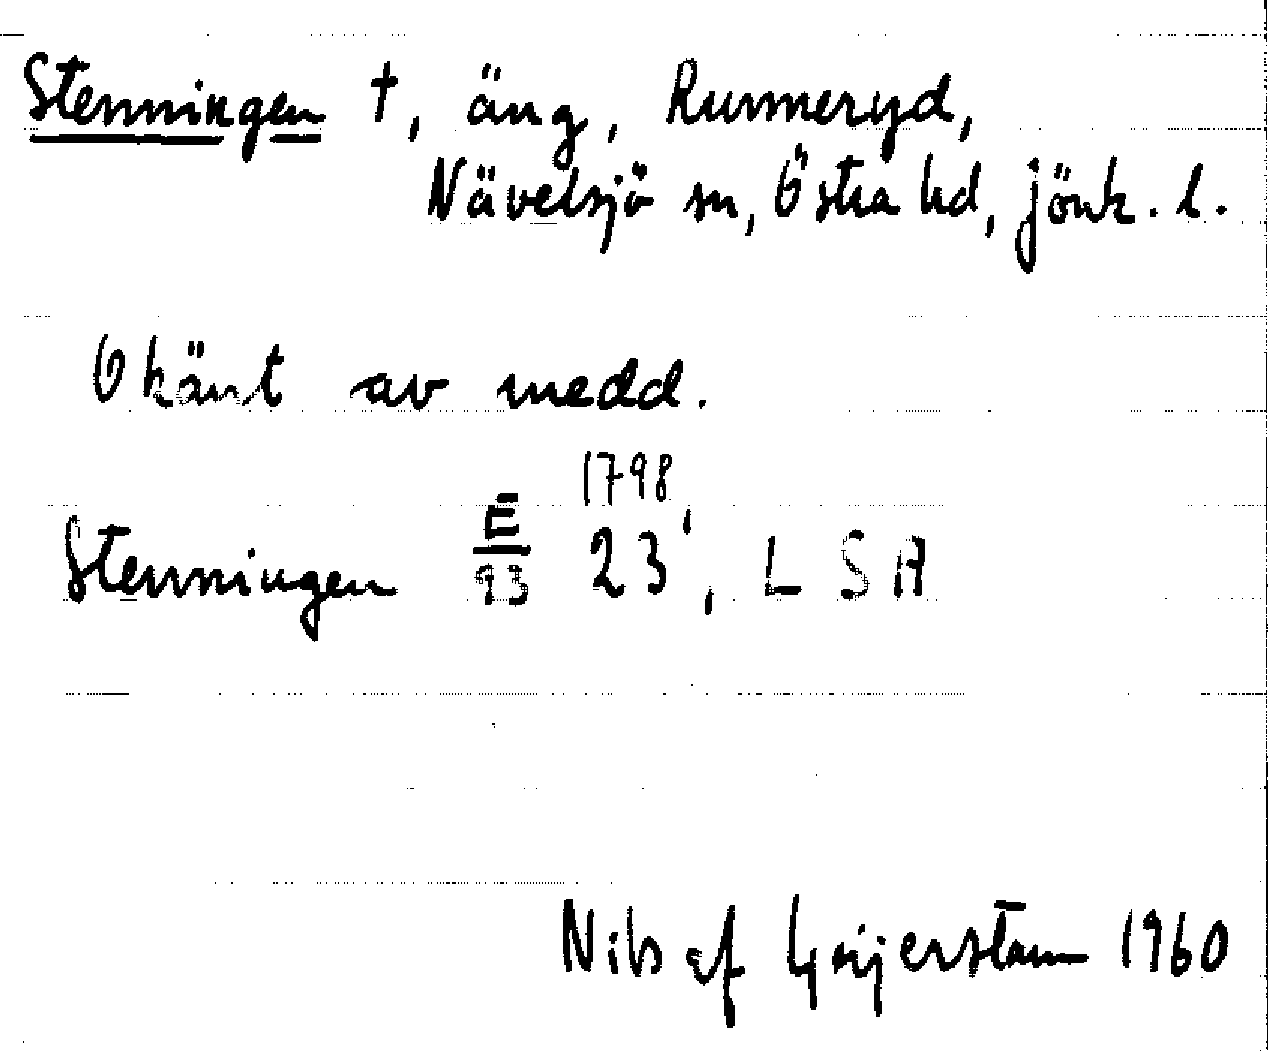 Stenningen †, äng, Runneryd,
Nävelsjö sn, Östra hd, Jönk. l.
Okänt av medd.
1798,
Stenningen E/93 23, LSA
Nils af Geijerstam 1960